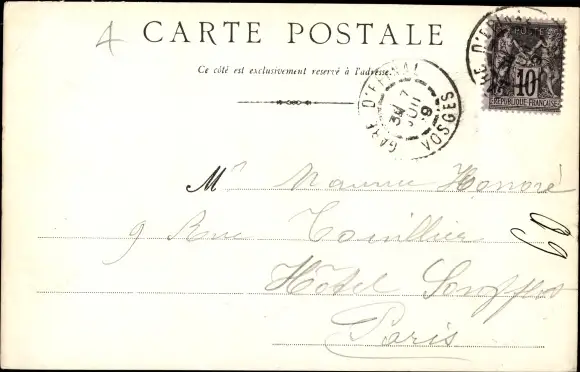 4
CARTE POSTALE
Ce côté est exclusivement reservé à l'adresse.
GARE D'EPINAL
VOSGES
POSTE
10
REPUBLIQUE FRANÇAISE
Mr Maurice Honoré
9 Rue Touillier
Hôtel Soufflot
Paris